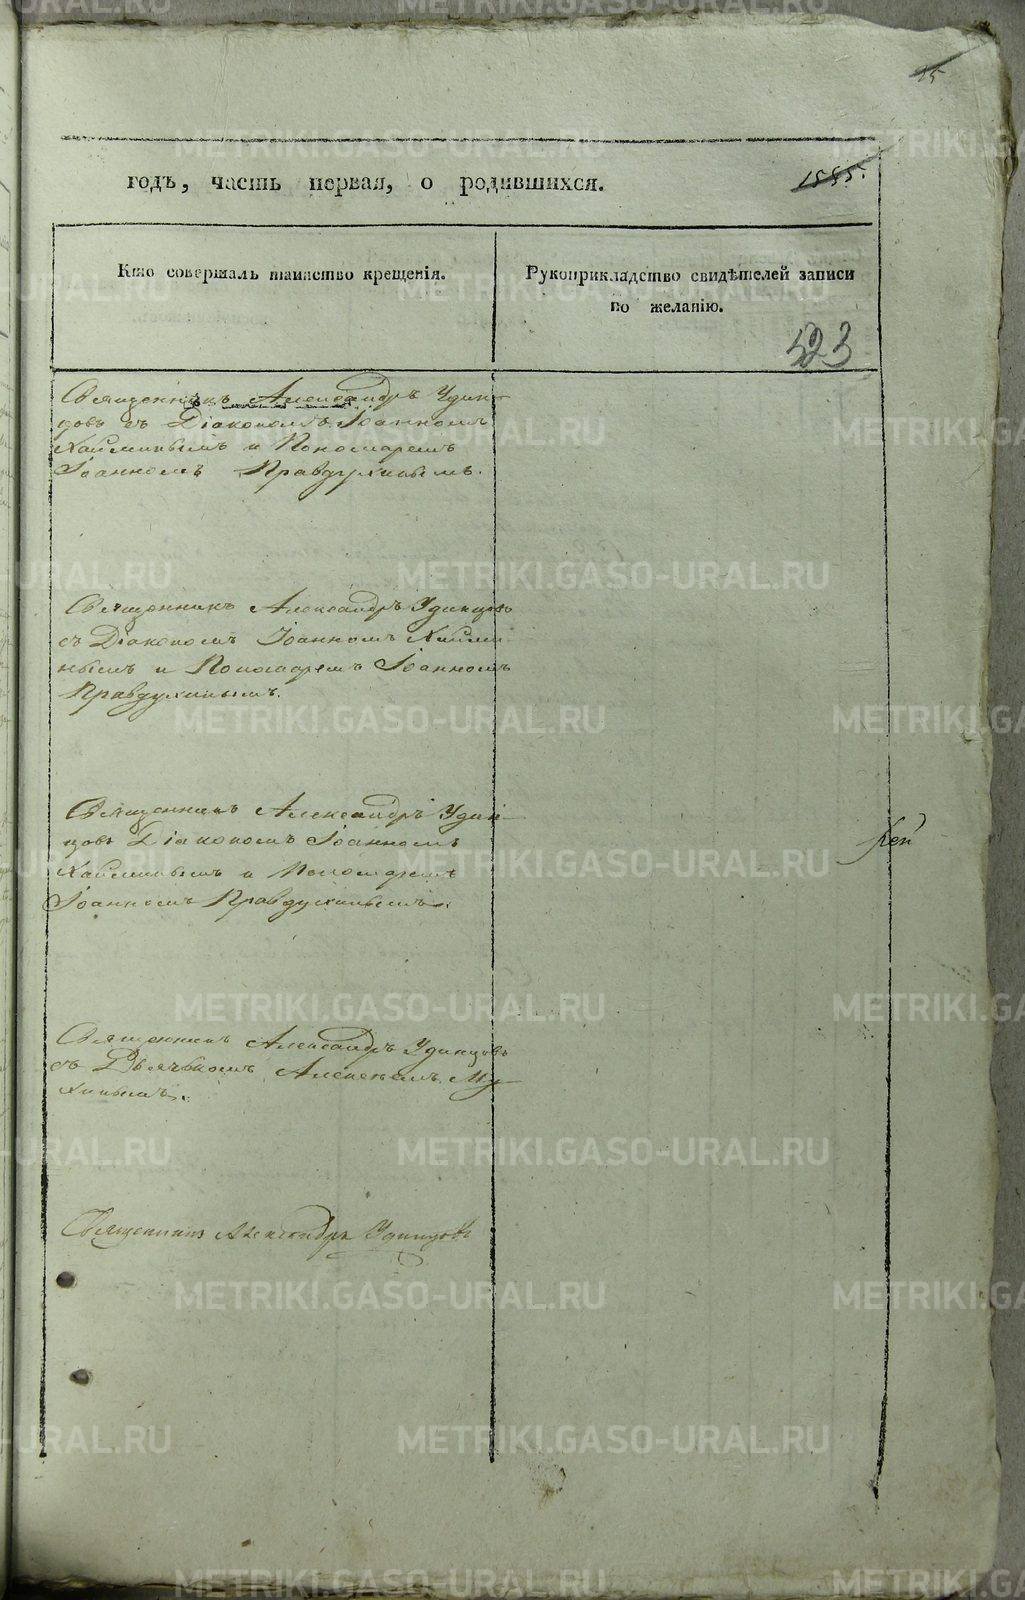 15
годъ, часть первая, о родившихся.
1585.
Кто совершалъ таинство крещенія.
Рукоприкладство свидѣтелей записи
по желанію.
523
Священникъ Александръ Удин-
цовъ съ Діакономъ Іоанномъ
и Пономаремъ
Іоанномъ Правдухинымъ.
Священникъ Александръ Удинцовъ
съ Діакономъ Іоанномъ
нымъ и Пономаремъ Іоанномъ
Правдухинымъ.
Священникъ Александръ Удин-
цовъ Діакономъ Іоанномъ
и Пономаремъ
Іоанномъ Правдухинымъ.
Священникъ Александръ Удинцовъ
съ Дьячкомъ Алексѣемъ Му-
хинымъ.
Священникъ Александръ Удинцовъ
METRIKI.GASO-URAL.RU